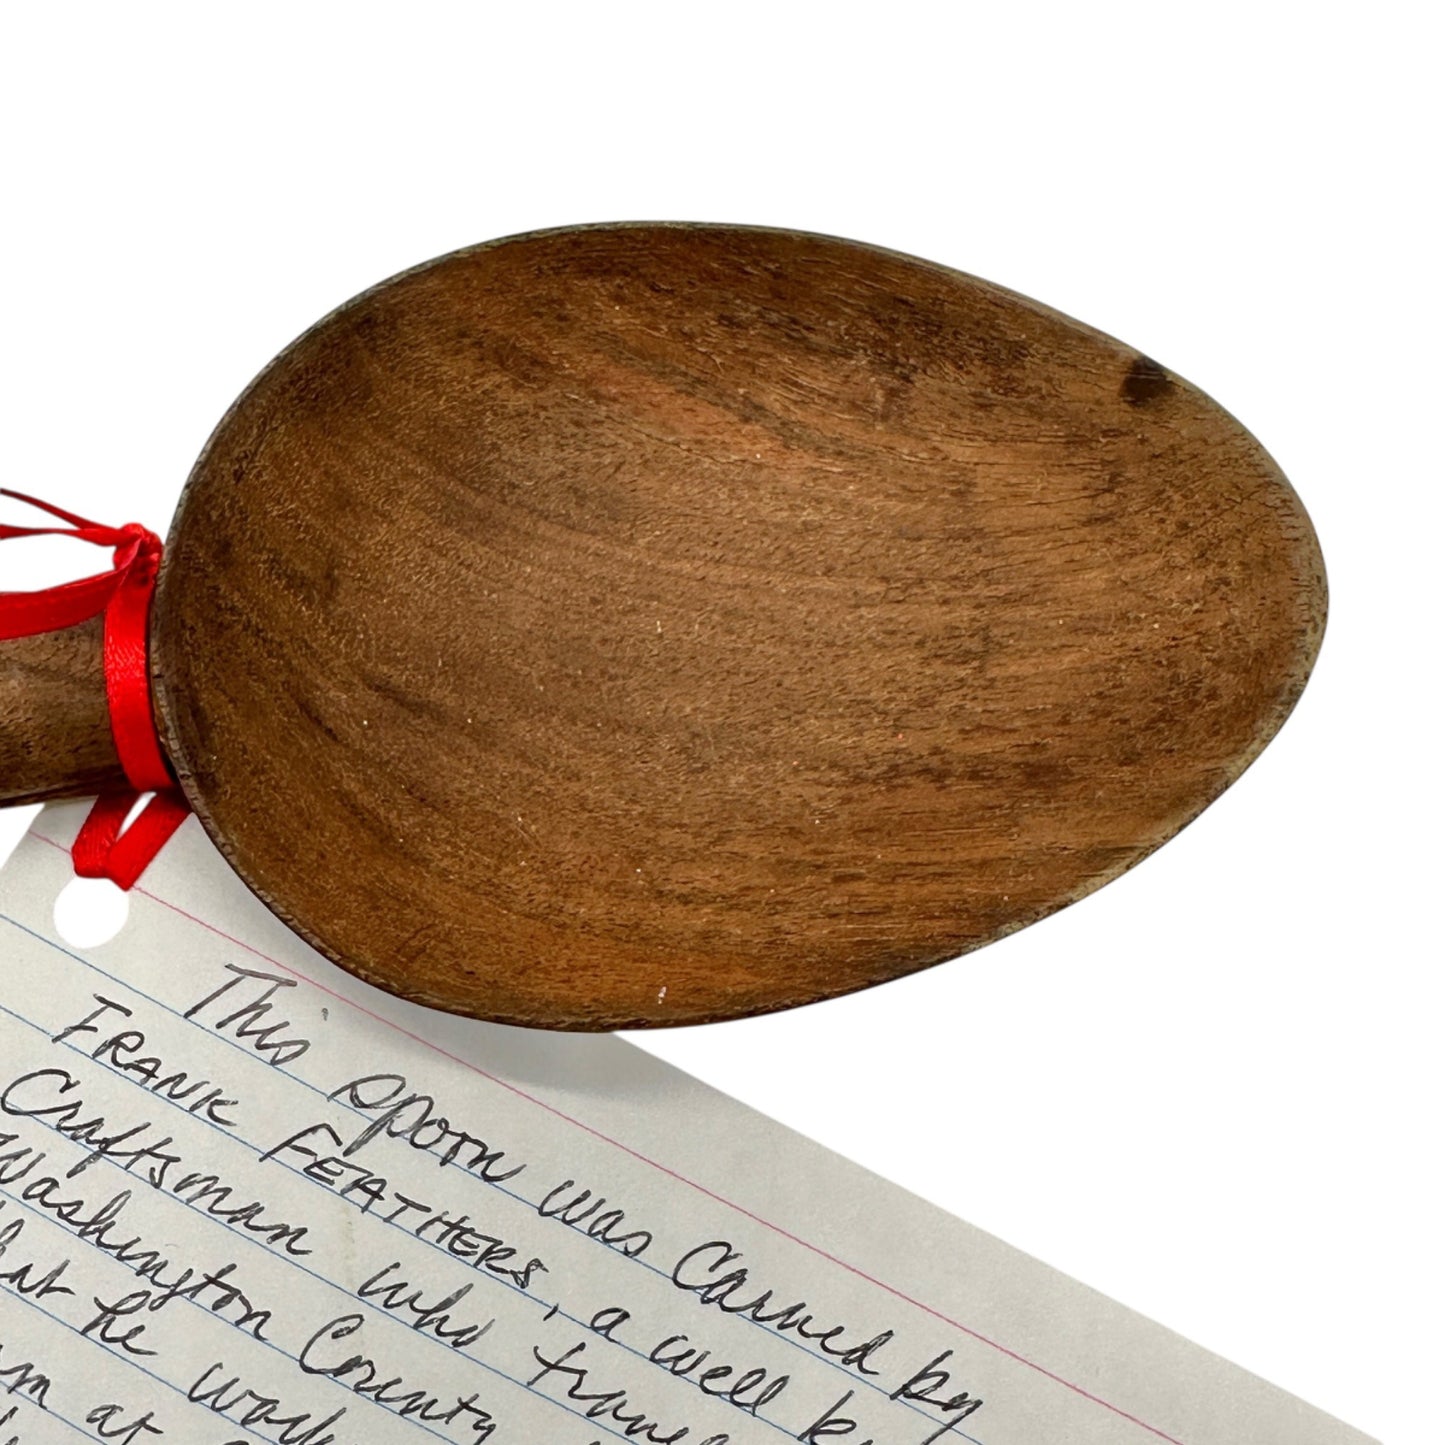 This spoon was carved by
FRANK FEATHERS, a well
Craftsman who
Washington County
he
at